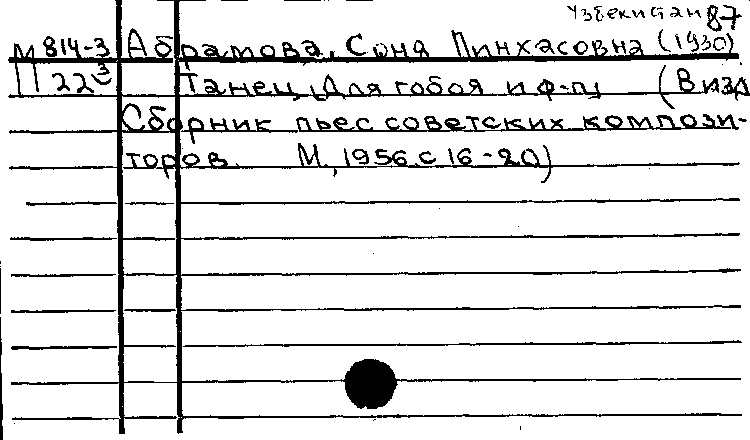 Узбекистан 87
М 814-3 Абрамова, Соня Пинхасовна (1930)
П 22 3 Танец. Для гобоя и ф-п. (В изд
Сборник пьес советских компози-
торов. М., 1956. с 16-20)